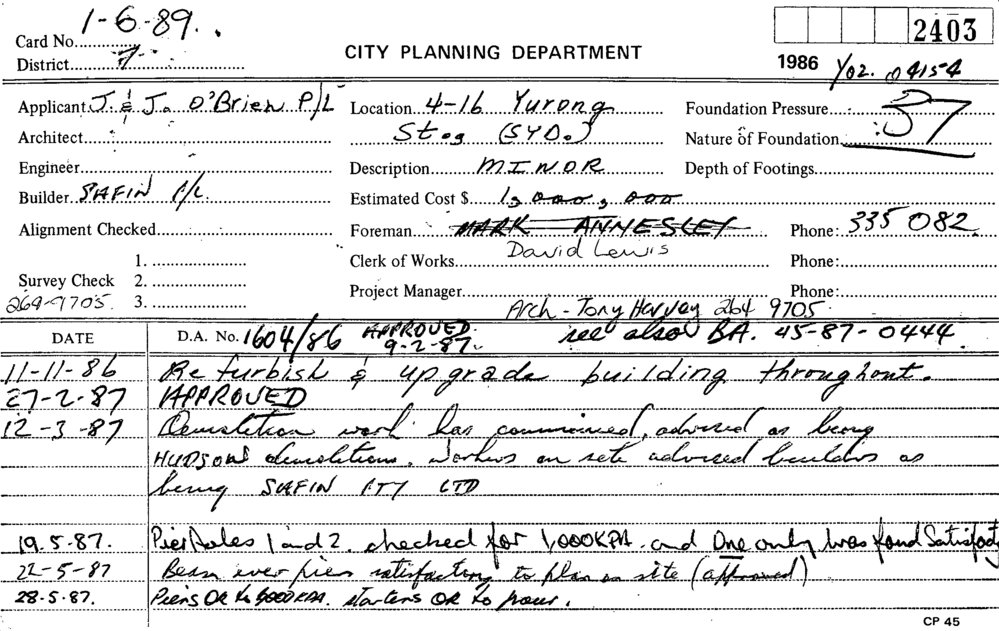 1-6-89.
Card No.
District 7
CITY PLANNING DEPARTMENT
2403
1986 Y02. 04154
Applicant J. & J. O'Brien P/L
Location 4-16 Yurong
St. (SYD.)
Foundation Pressure
37
Architect
Nature of Foundation
Engineer
Description MINOR
Depth of Footings
Builder SAFIN P/L
Estimated Cost $ 1,000,000
Alignment Checked
Foreman MARK ANNESLEY
Phone: 335 082
David Lewis
Clerk of Works
Phone:
1.
Survey Check 2.
269-9705 3.
Project Manager
Phone:
Arch - Tony Harvey 264 9705
DATE D.A. No. 1604/86 APPROVED 9-2-87. see also BA. 45-87-0444
11-11-86 Refurbish & upgrade building throughout.
27-2-87 APPROVED
12-3-87 Demolition work has commenced, advised as being
HUDSONS demolitions. Workers on site advised builders as
being SAFIN PTY LTD
19.5.87. Pier holes 1 and 2. checked for 1,000KPA. and One only was found Satisfactory
22-5-87 Beam over piers satisfactory to plan on site (approved)
28.5.87. Piers OK to KPA. starters OK to pour.
CP 45